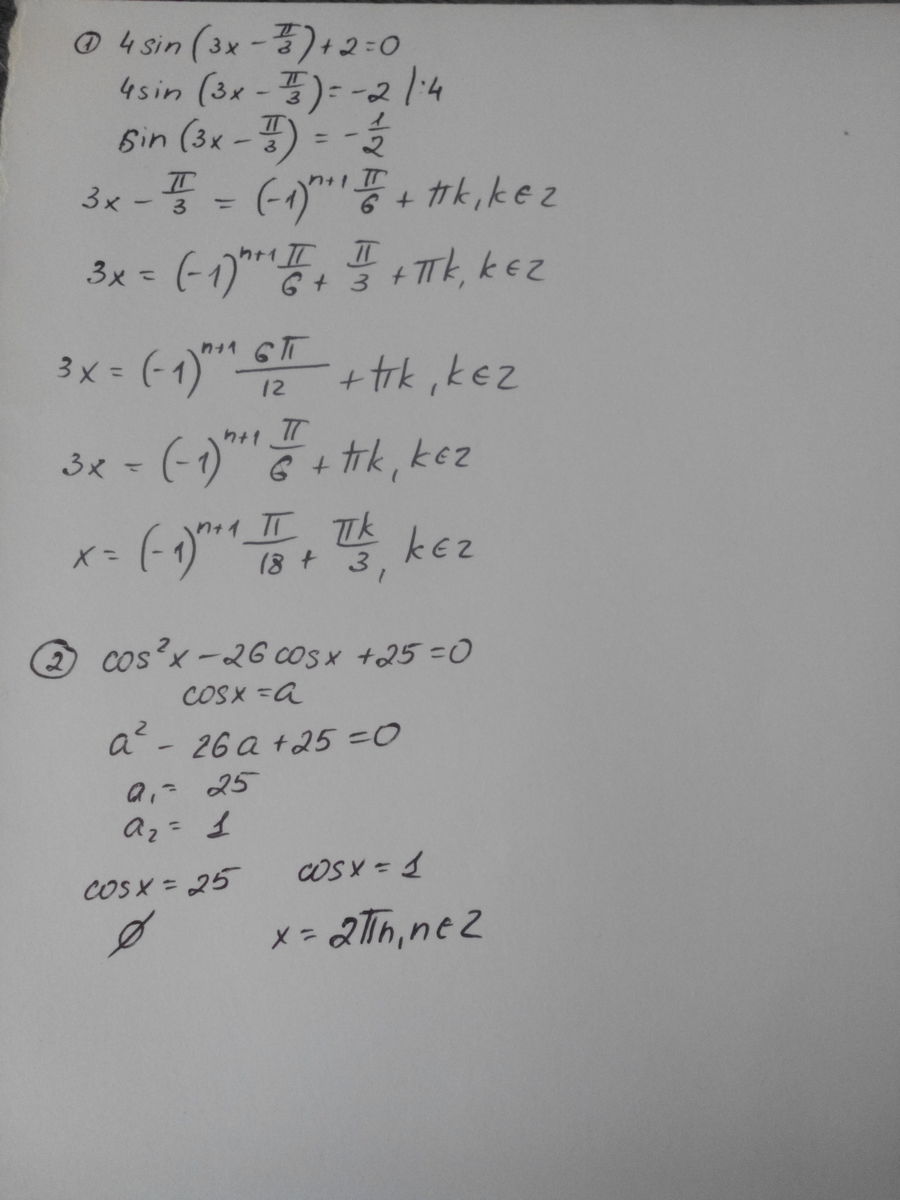 ① 4 sin (3x - π/3) + 2 = 0
4 sin (3x - π/3) = -2 |:4
sin (3x - π/3) = - 1/2
3x - π/3 = (-1)ⁿ⁺¹ π/6 + πk, k ∈ z
3x = (-1)ⁿ⁺¹ π/6 + π/3 + πk, k ∈ z
3x = (-1)ⁿ⁺¹ 6π/12 + πk, k ∈ z
3x = (-1)ⁿ⁺¹ π/6 + πk, k ∈ z
x = (-1)ⁿ⁺¹ π/18 + πk/3, k ∈ z
② cos²x - 26 cosx + 25 = 0
cosx = a
a² - 26a + 25 = 0
a₁ = 25
a₂ = 1
cosx = 25 cosx = 1
∅ x = 2πn, n ∈ Z